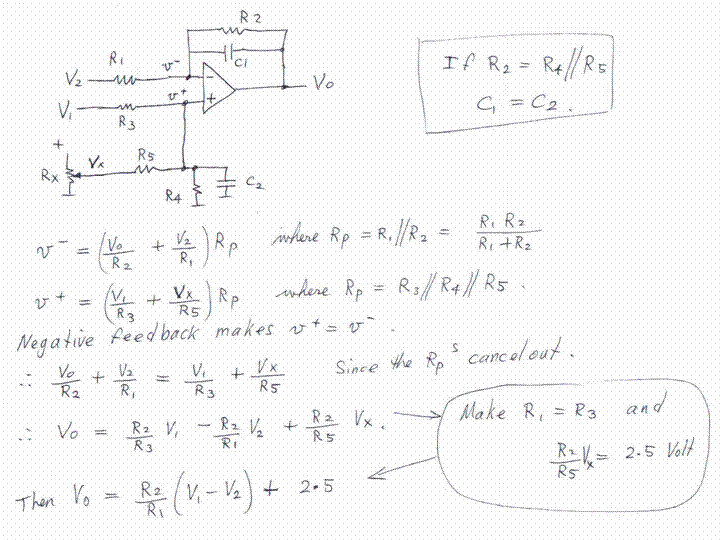 R2
C1
R1
V2
v⁻
-
Vo
V1
v⁺
+
R3
+
Vx
R5
Rx
R4
C2
If R2 = R4//R5
C1 = C2.
v⁻ = (Vo/R2 + V2/R1) Rp where Rp = R1//R2 = R1 R2/R1+R2
v⁺ = (V1/R3 + Vx/R5) Rp where Rp = R3//R4//R5.
Negative feedback makes v⁺ = v⁻.
∴ Vo/R2 + V2/R1 = V1/R3 + Vx/R5 Since the Rp s cancel out.
∴ Vo = R2/R3 V1 - R2/R1 V2 + R2/R5 Vx.
Make R1 = R3 and
R2/R5 Vx = 2.5 Volt
Then Vo = R2/R1 (V1 - V2) + 2.5